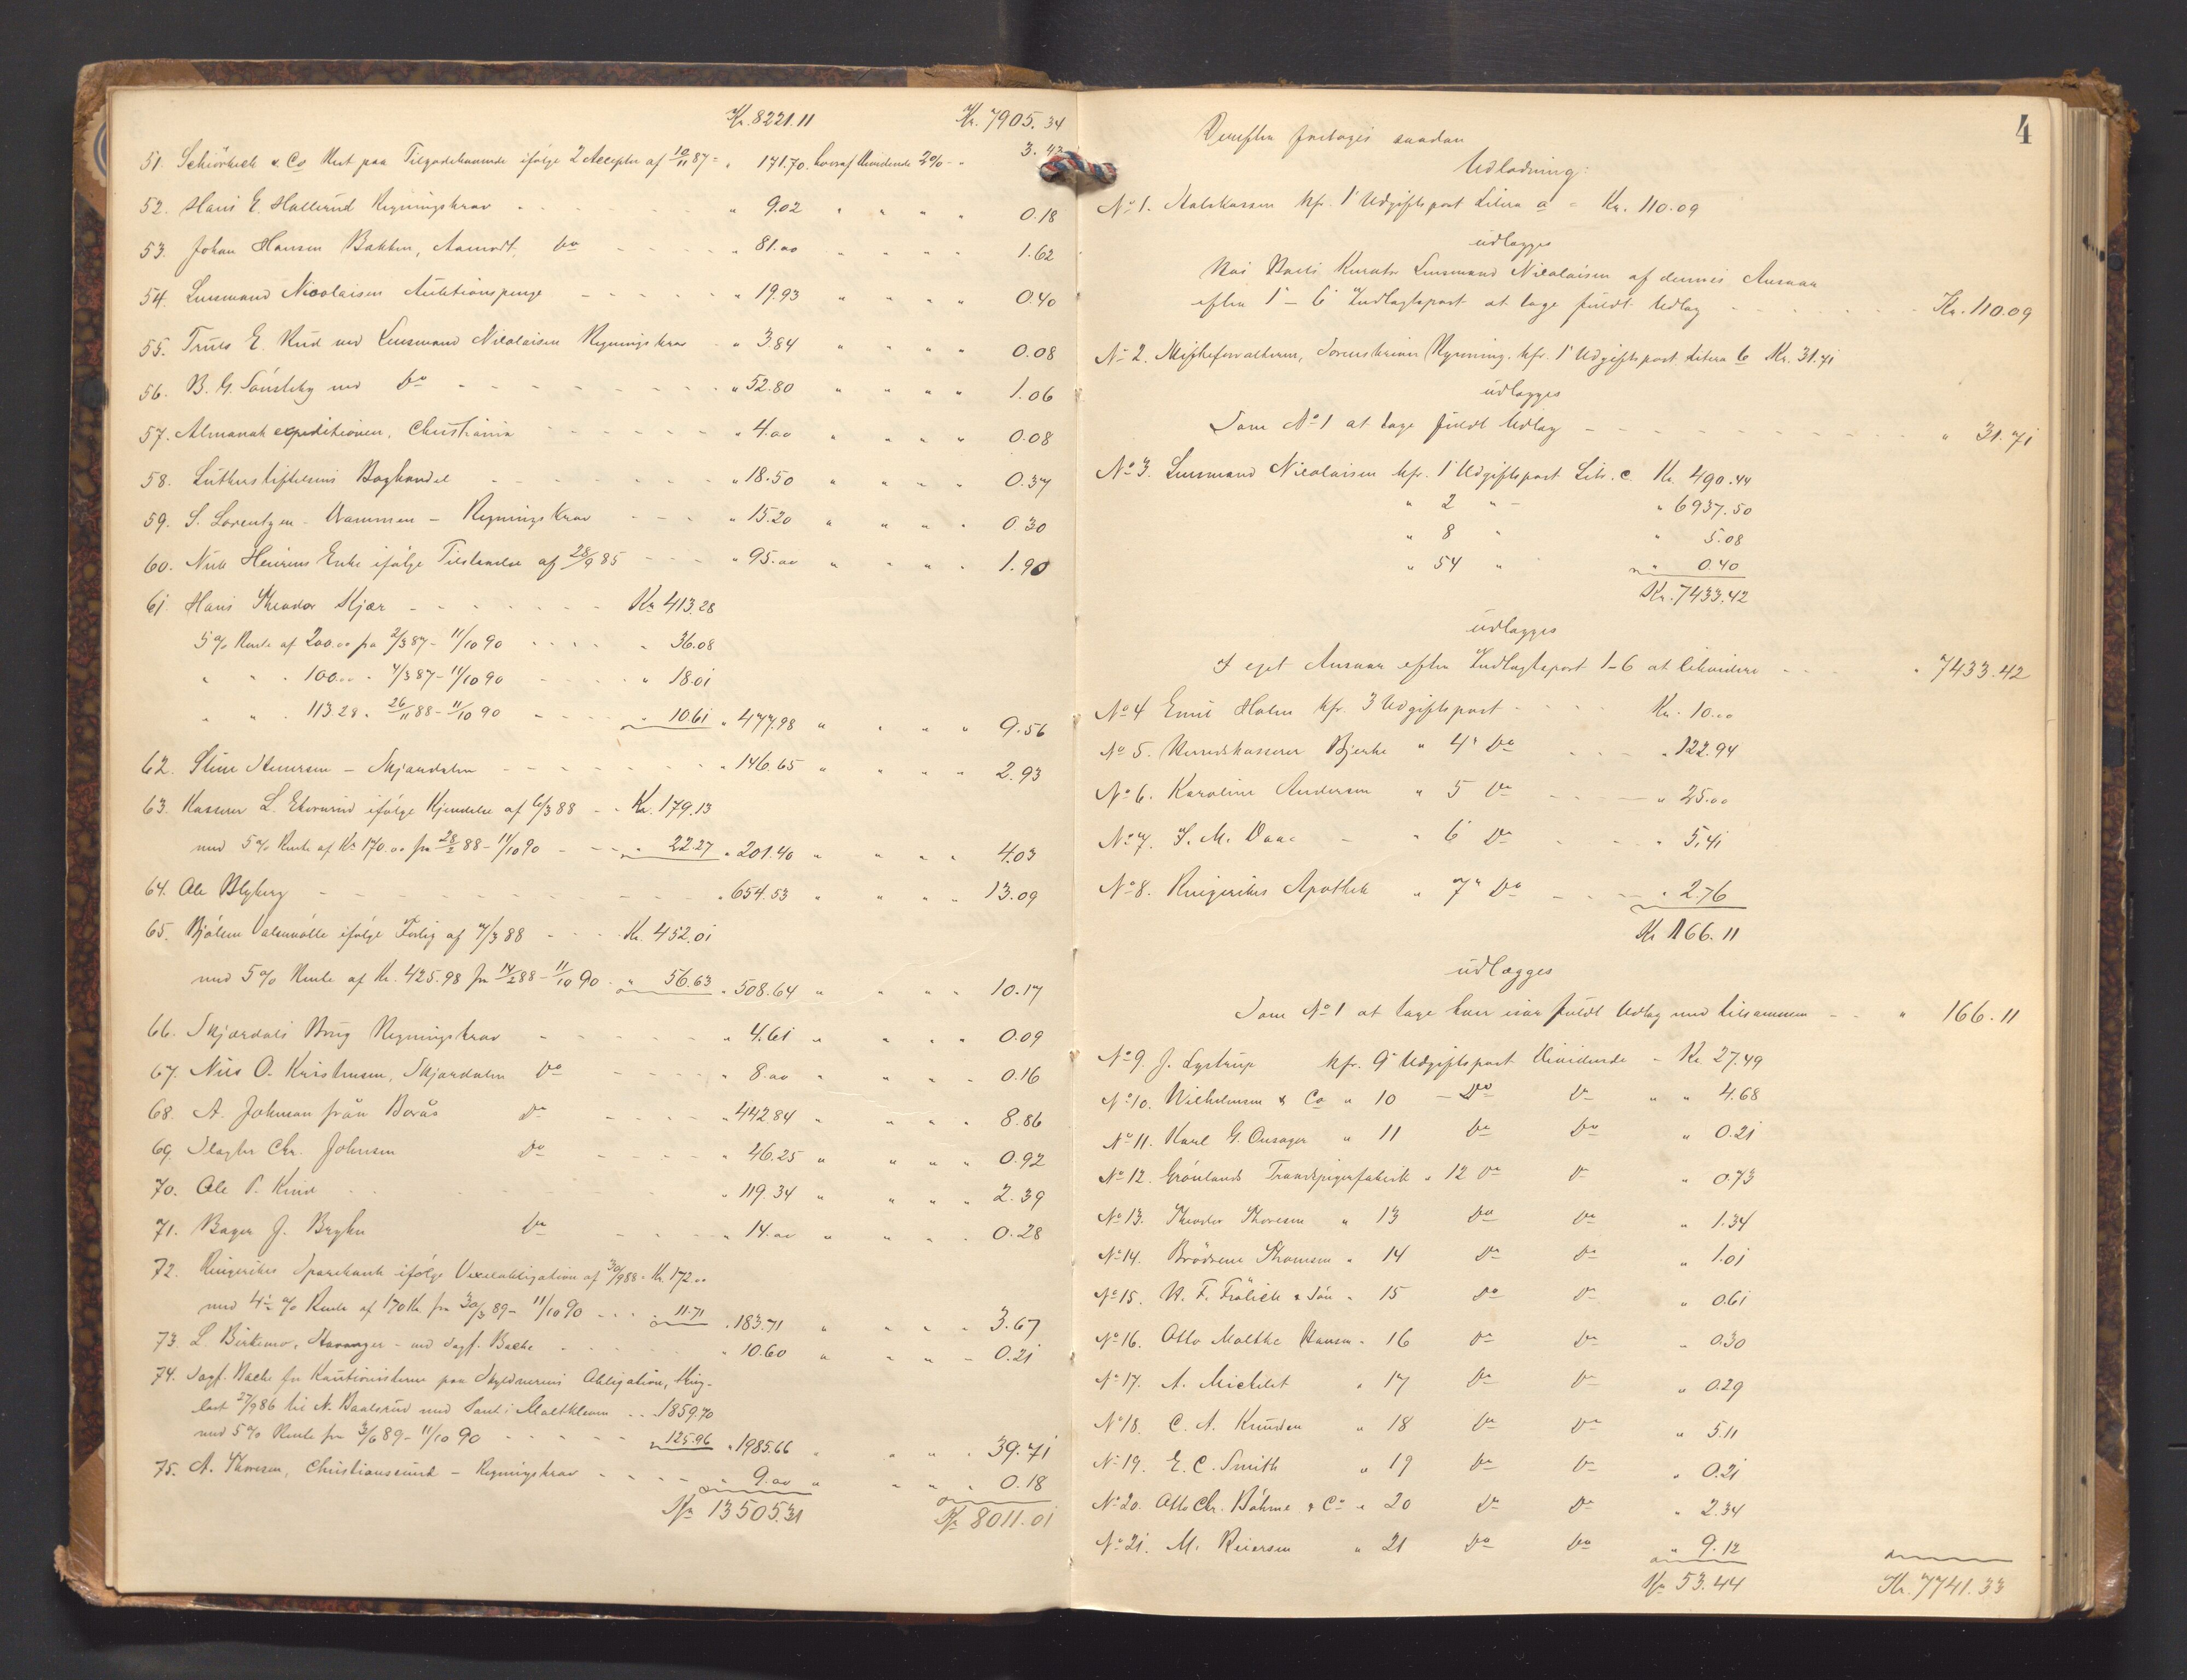 Kr. 8221.11 Kr. 7905.34
51. Schiørbeck & Co Rest paa Tilgodehavende ifølge 2 Accepter af 10/11 87 = " 171.70. hvoraf Dividende 2% - " 3.43
52. Hans E. Hallerud Regningskrav - " 9.02 " " " " 0.18
53. Johan Hansen Bakken, Aamodt, Do - " 81.00 " " " " 1.62
54. Lensmand Nicolaisen Auktionspenge - " 19.93 " " " " 0.40
55. Truls E. Rud ved Lensmand Nicolaisen Regningskrav - " 3.84 " " " " 0.08
56. B. G. Sönsteby ved Do - " 52.80 " " " " 1.06
57. Almanakexpeditionen, Christiania - " 4.00 " " " " 0.08
58. Lutherstiftelsens Boghandel - " 18.50 " " " " 0.37
59. S. Lorentzen - Drammen - Regningskrav - " 15.20 " " " " 0.30
60. Heirens Enke ifølge Tilstaaelse af 28/9 85 - " 95.00 " " " " 1.90
61. Hans Theodor Skjær - Kr 413.28
5% Rente af 200.00 fra 2/3 87 - 11/10 90 " 36.08
" " " 100.00 " 4/3 87 - 11/10 90 " 18.01
" " " 113.28 " 26/11 88 - 11/10 90 " 10.61 " 477.98 " " " " 9.56
62. Stine - Skjærdalen - " 146.65 " " " " 2.93
63. Kasserer L. ifølge Kjendelse af 6/3 88 - Kr. 179.13
med 5% Rente af Kr 170.00 fra 28/2 88 - 11/10 90 - " 22.27 " 201.40 " " " " 4.03
64. Ole Blyberg - " 654.53 " " " " 13.09
65. Bjølsen Valsemølle ifølge Forlig af 7/3 88 - Kr. 452.01
med 5% Rente af Kr. 425.98 fra 14/2 88 - 11/10 90 " 56.63 " 508.64 " " " " 10.17
66. Skjærdals Brug Regningskrav - " 4.61 " " " " 0.09
67. Nils O. Kristensen, Skjærdalen Do - " 8.00 " " " " 0.16
68. A. Johnson från Borås Do - " 442.84 " " " " 8.86
69. Slagter Chr. Johnsen Do - " 46.25 " " " " 0.92
70. Ole P. " 119.34 " " " " 2.39
71. Bager J. Do - " 14.00 " " " " 0.28
72. Ringerikes Sparebank ifølge Vexelobligation af 30/9 88 - Kr. 172.00
med 4½% Rente af 170 Kr. fra 30/3 89 - 11/10 90 - " 11.71 " 183.71 " " " " 3.67
73. L. Birkemo, Stavanger - ved Sagf. Bache " 10.60 " " " " 0.21
74. Sagf. Bache for Kautionisterne paa Skyldnerens Obligation, thing-
læst 27/9 86 til N. med Pant i - 1859.70
med 5% Rente fra 3/6 89 - 11/10 90 - " 125.96 " 1985.66 " " " " 39.71
75. A. Thoresen, Christianssund - Regningskrav - " 9.00 " " " " 0.18
Kr 13505.31 Kr 8011.01
4
Derefter foretages saadan
Udlodning:
No 1. Statskassen kfr. 1 Udgiftspost Litera a = Kr. 110.09
udlægges
Hos Boets Kurator Lensmand Nicolaisen af dennes Ansvar
efter 1 - 6 Indtægtspost at tage fuldt Udlæg - Kr. 110.09
No 2. Skifteforvalteren, Sorenskriver kfr. 1 Udgiftspost Litera b Kr. 31.71
udlægges
Som No 1 at tage fuldt Udlæg - " 31.71
No 3. Lensmand Nicolaisen kfr. 1 Udgiftspost Litr. c Kr. 490.44
" 2 " - " 6937.50
" 8 " " 5.08
" 54 " " 0.40
Kr. 7433.42
udlægges
I eget Ansvar efter Indtægtspost 1-6 at likvidere - " 7433.42
No 4 Emil Holm kfr. 3 Udgiftspost - Kr. 10.00
No 5. Herredskasserer Bjerke " 4 Do - " 122.94
No 6. Karoline Andersen " 5 Do - " 25.00
No 7. I. M. Daae - " 6 Do - " 5.41
No 8. Ringerikes Apothek " 7 Do - " 2.76
Kr 166.11
udlægges
Som No 1 at tage hver især fuldt Udlæg med tilsammen - " 166.11
No 9. J. Lystrup kfr. 9 Udgiftspost Dividende - Kr. 27.49
No 10. Wilhelmsen & Co " 10 - Do Do " " 4.68
No 11. Karl G. Onsager " 11 Do Do " 0.21
No 12. Grønlands " 12 Do Do " 0.73
No 13. Theodor Thoresen " 13 Do Do " 1.34
No 14. Brødrene Thomsen " 14 Do Do " 1.01
No 15. H. F. Frölich & Søn " 15 Do Do " 0.61
No 16. Otto Moltke Hansen " 16 Do Do " 0.30
No 17. A. Michelet " 17 Do Do " 0.29
No 18. C. A. Knudsen " 18 Do Do " 5.11
No 19. E. C. Smith " 19 Do Do " 0.21
No 20. Otto Chr. Böhme & Co " 20 Do Do " 2.34
No 21. M. Reiersen " 21 Do Do " 9.12
Kr 53.44 Kr. 7741.33